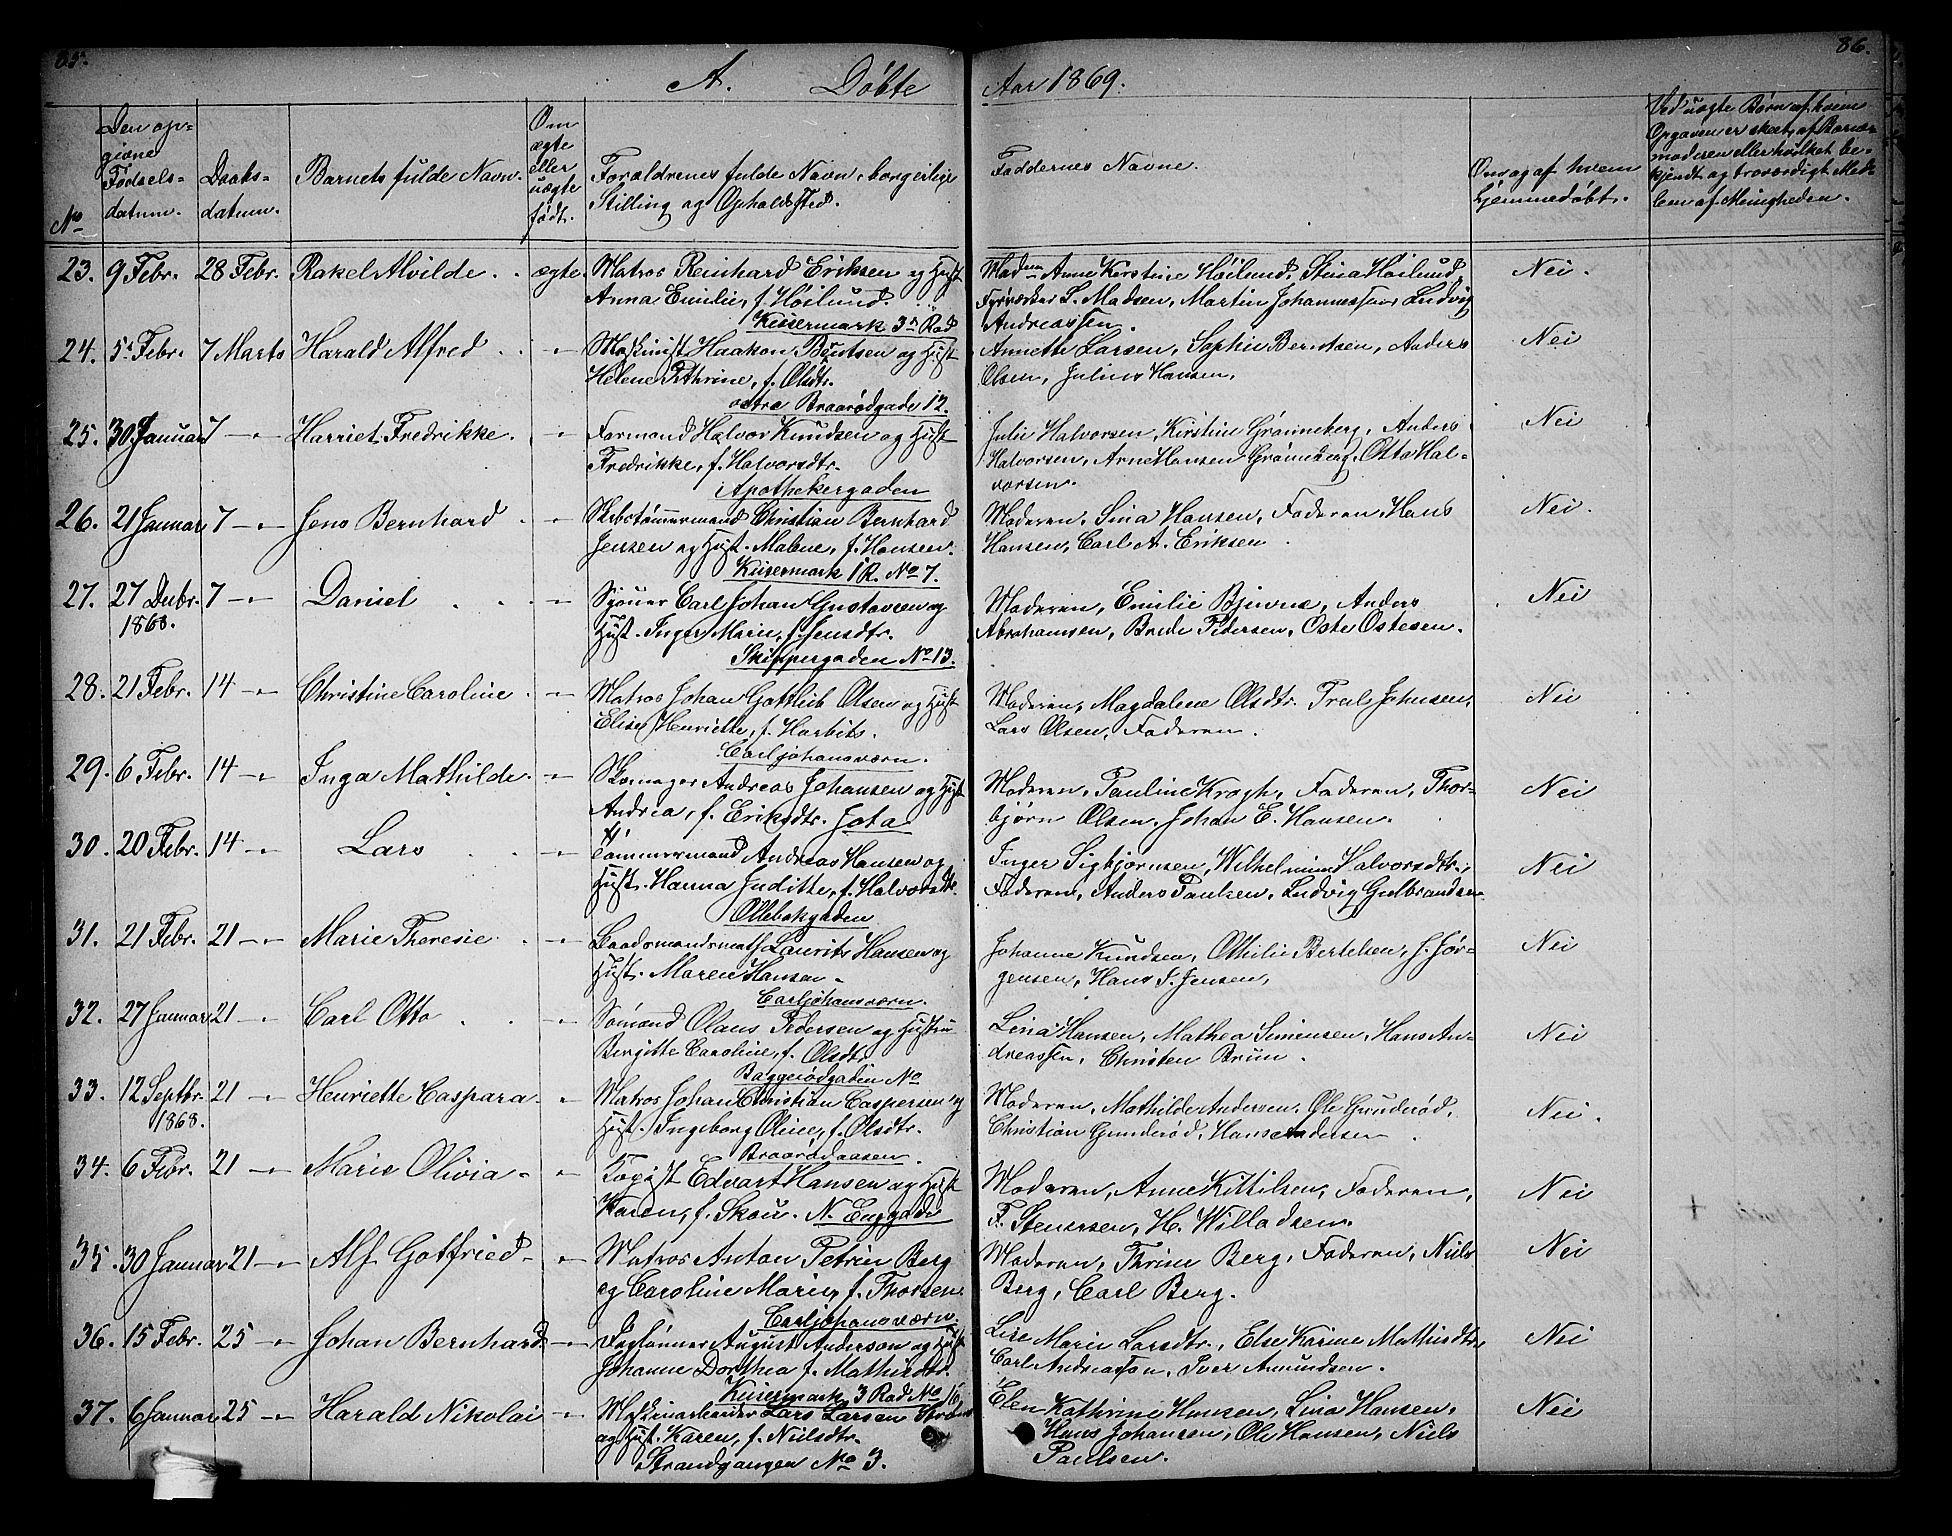 85.
86.
A. Døbte
Aar 1869.
No
Den op-
givne
Fødsels-
datum.
Daabs-
datum.
Barnets fulde Navn.
Om
ægte
eller
uægte
født.
Forældrenes fulde Navn, borgerlige
Stilling og Opholdsted.
Faddernes Navne.
Om og af hvem
hjemmedøbt.
Ved uægte Børn af hvem
Opgaven er skeet, af Barne-
moderen eller hvilket be-
kjendt og troværdigt Med-
lem af Menigheden.
23. 9 Febr. 28 Febr. Rakel Alvilde. ægte. Matros Reinhard Eriksen og Hust
Anna Emilie, f. Høilund.
Kisermark 3 Rad
Madm Anne Kirstine Høilund, Stina Høilund,
Fyrværker L. Madsen, Martin Johannessen Ludvig
Andreassen.
Nei.
24. 5 Febr. 7 Marts Harald Alfred Maskinist Haakon Berntsen og Hust
Helene Kathrine, f. Olsdtr.
østre Braarødgade 12.
Annette Larsen, Sophie Berntsen, Anders
Olsen, Julius Hansen.
Nei
25. 30 Januar 7 -"- Harriet Fredrikke. Formand Halvor Knudsen og Hust
Fredrikke, f. Halvorsdtr.
Apothekergaden
Julie Halvorsen, Kirstine Grønneberg, Anders
Halvorsen, Arne Hansen Grønneberg, Otto Hal-
vorsen.
Nei
26. 21 Januar 7 -"- Jens Bernhard Skibstømmermand Christian Bernhard
Jensen og Hust. Malene, f. Hansen.
Kisermark 1 R. No 7.
Moderen, Sina Hansen, Faderen, Hans
Hansen, Carl A. Eriksen.
Nei.
27. 27 Decbr. 7 -"- Daniel
1868.
Sjouer Carl Johan Gustavsen og
Hust. Inger Marie, f. Jensdtr.
Skippergaden No 13.
Moderen, Emilie Bjerne, Anders
Abrahamsen, Brede Pedersen, Oste Ostesen.
Nei
28. 21 Febr. 14 -"- Christine Caroline. Matros Johan Gottlieb Olsen og Hust
Elise Henriette, f. Harbits.
Carljohansværn.
Moderen, Magdalene Olsdtr. Johnsen,
Lars Olsen, Faderen.
Nei
29. 6 Febr. 14 -"- Inga Mathilde. Skomager Andreas Johansen og Hust
Andrea, f. Eriksdtr.
Moderen, Pauline Krogh, Faderen, Thor-
bjørn Olsen, Johan E. Hansen.
Nei
30. 20 Febr. 14 -"- Lars Tømmermand Andreas Hansen og
Hust. Hanna Juditte, f. Halvorsdtr.
Ollebakgaden
Inger Sigbjørnsen, Wilhelmine Halvorsdtr.,
Faderen, Anders Paulsen, Ludvig Gulbrandsen
Nei
31. 21 Febr. 21 -"- Marie Theresie Baadsmandsmath Laurits Hansen og
Hust. Maren Hansen
Carljohansværn.
Johanne Knudsen, Othilie Bertelsen, J. Jør-
gensen, Hans J. Jensen,
Nei
32. 27 Januar 21 -"- Carl Otto Sømand Olaus Pedersen og Hustru
Birgitte Caroline, f. Olsdtr.
Baggerødgaden No
Lina Hansen, Mathea Simensen, Hans An-
dreassen, Christen Bruun.
Nei
33. 12 Septbr. 21 -"- Henriette Caspara
1868.
Matros Johan Christian Caspersen og
Hust. Ingeborg Oline, f. Olsdtr.
Braarødaasen.
Moderen, Mathilde Andersen, Ole Gunderød,
Christian Gunderød, Hans Andersen.
Nei.
34. 6 Febr. 21 -"- Marie Olivia Kopist Edvart Hansen og Hust
Karen, f. Skou. N. Enggade
Moderen, Anne Kittilsen, Faderen,
F. Stenersen, H. Willadsen.
Nei
35. 30 Januar 21 -"- Alf Gotfried Matros Anton Petrin Berg
og Caroline Marie, f. Thorsen
Carljohansværn.
Moderen, Thrine Berg, Faderen, Niels
Berg, Carl Berg.
Nei
36. 15 Febr. 25 -"- Johan Bernhard Daglønner August Anderson og Hust
Johanne Dorthea f. Mathisdtr.
Kisermark 3 Rad No 16
Lise Marie Larsdtr., Else Karine Mathisdtr,
Carl Andreassen, Iver Amundsen.
Nei
37. 6 Januar 25 -"- Harald Nikolai Maskinarbeider Lars Larsen
og Hust. Karen, f. Nielsdtr.
Strandgangen No 3.
Elen Kathrine Hansen, Lina Hansen,
Hans Johansen, Ole Hansen, Niels
Paulsen.
Nei